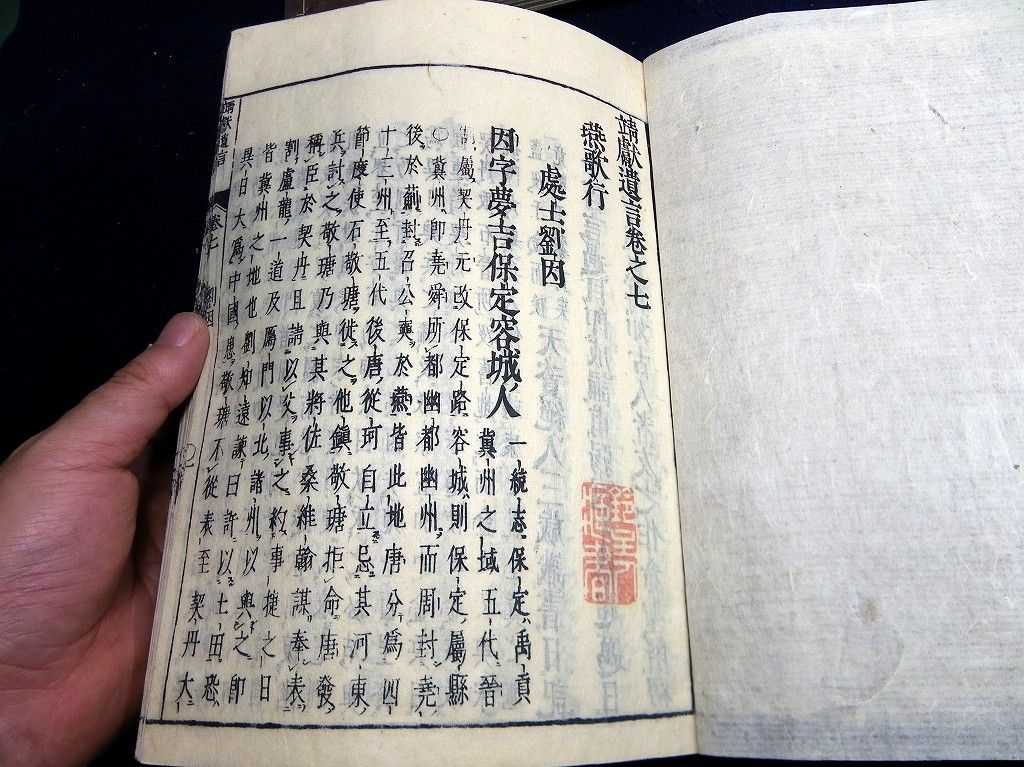 靖獻遺言卷之七
燕歌行
處士劉因
因字夢吉保定容城人
一統志保定禹貢
冀州之域五代晉
屬契丹元改保定路容城則保定屬縣
○冀州即堯舜所都幽都幽州而周封堯
後於薊封召公奭於燕皆此地唐分爲四
十二州至五代後唐從珂自立忌其河東
節度使石敬瑭徙之他鎮敬瑭拒命唐發
兵討之敬瑭乃與其將佐桑維翰謀奉表
稱臣於契丹且請以父事之約事捷之日
割盧龍一道及鴈門以北諸州以與之即
皆冀州之地也劉知遠諫曰許以土田恐
異日大爲中國患敬瑭不從表至契丹大
靖獻遺言